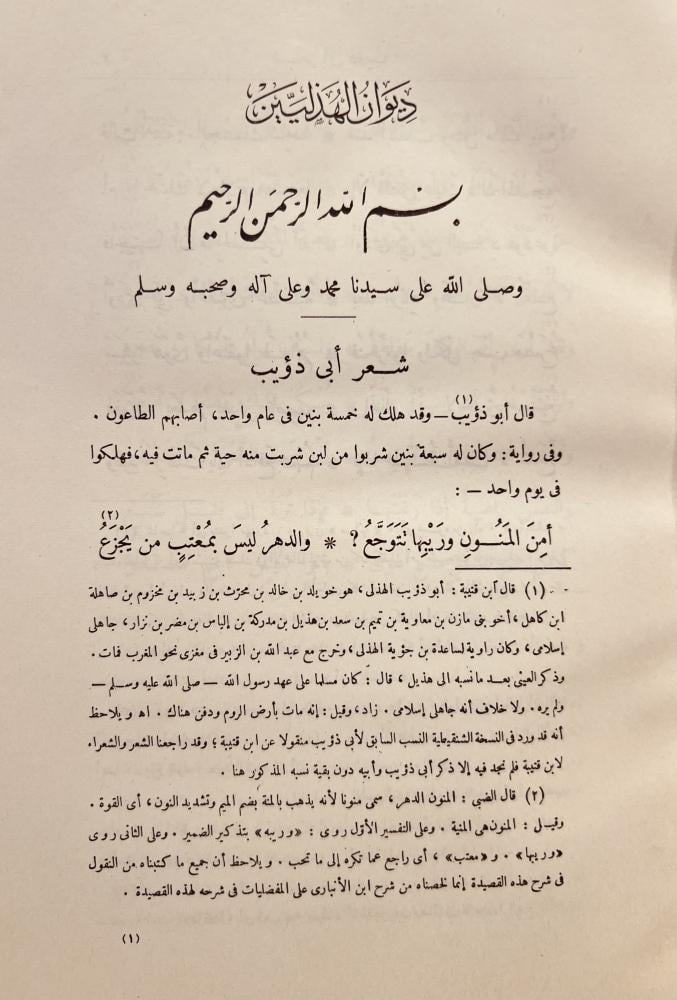 ديوان الهذليين
بسم الله الرحمن الرحيم
وصلى الله على سيدنا محمد وعلى آله وصحبه وسلم
شعر أبى ذؤيب
قال أبو ذؤيب(١) — وقد هلك له خمسة بنين فى عام واحد، أصابهم الطاعون .
وفى رواية: وكان له سبعة بنين شربوا من لبن شربت منه حية ثم ماتت فيه، فهلكوا
فى يوم واحد — :
أَمِنَ المَنُونِ ورَيْبِها تَتَوَجَّعُ؟ * والدهرُ ليسَ بمُعْتِبٍ من يَجْزَعُ (٢)
(١) قال ابن قتيبة : أبو ذؤيب الهذلى، هو خويلد بن خالد بن محرّث بن زبيد بن مخزوم بن صاهلة
ابن كاهل، أخو بنى مازن بن معاوية بن تميم بن سعد بن هذيل بن مدركة بن إلياس بن مضر بن نزار، جاهلى
إسلامى، وكان راوية لساعدة بن جؤية الهذلى، وخرج مع عبد الله بن الزبير فى مغزى نحو المغرب فمات .
وذكر العينى بعد ما نسبه الى هذيل ، قال : كان مسلما على عهد رسول الله — صلى الله عليه وسلم —
ولم يره . ولا خلاف أنه جاهلى إسلامى . زاد، وقيل : إنه مات بأرض الروم ودفن هناك . اه ويلاحظ
أنه قد ورد فى النسخة الشنقيطية النسب السابق لأبى ذؤيب منقولا عن ابن قتيبة ؛ وقد راجعنا الشعر والشعراء
لابن قتيبة فلم نجد فيه إلا ذكر أبى ذؤيب وأبيه دون بقية نسبه المذكور هنا .
(٢) قال الضبى : المنون الدهر، سمى منونا لأنه يذهب بالمنة بضم الميم وتشديد النون ، أى القوة .
وقيل : المنون هى المنية . وعلى التفسير الأوّل روى : «وريبه» بتذكير الضمير . وعلى الثانى روى
«وريبها» . و«معتب» ، أى راجع عما تكره إلى ما تحب . ويلاحظ أن جميع ما كتبناه من النقول
فى شرح هذه القصيدة إنما لخصناه من شرح ابن الأنبارى على المفضليات فى شرحه لهذه القصيدة .
(١)